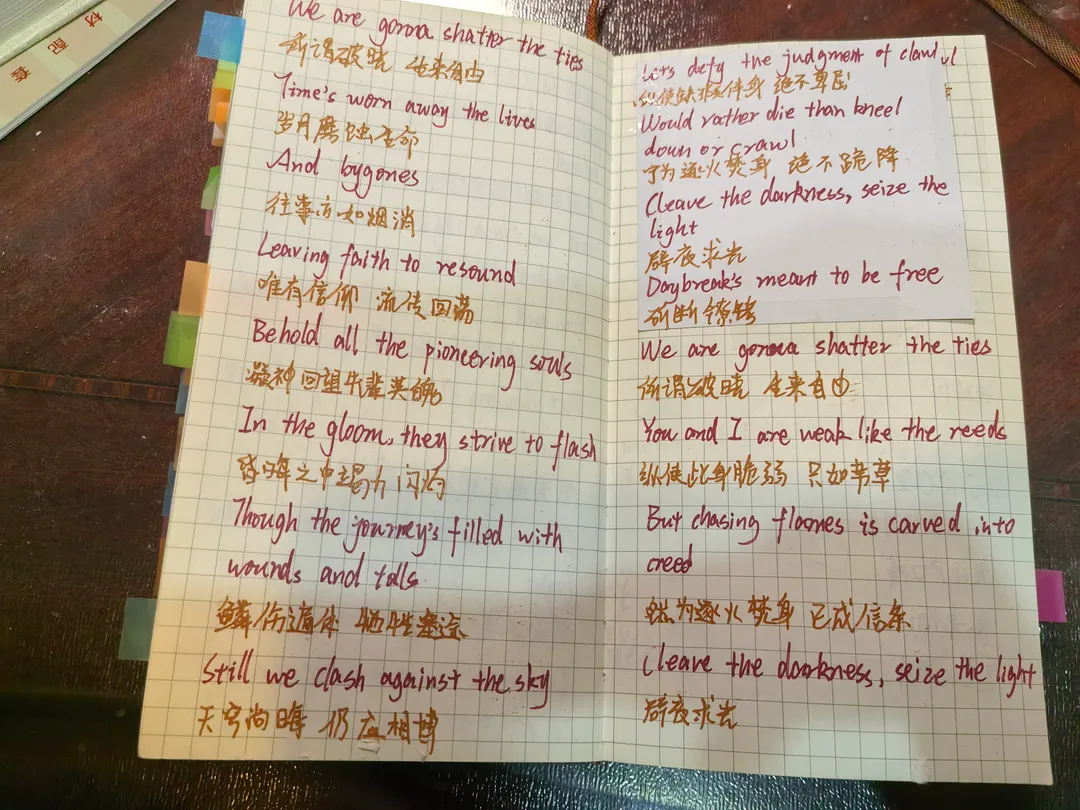 材 配
套
We are gonna shatter the ties
所谓破晓 生来自由
Time's worn away the lives
岁月磨蚀生命
And bygones
往事亦如烟消
Leaving faith to resound
唯有信仰 流传回荡
Behold all the pioneering souls
凝神回望先辈英魂
In the gloom, they strive to flash
昏晦之中竭力闪灼
Though the journey's filled with
wounds and tolls
鳞伤遍体 牺牲塞途
Still we clash against the sky
天穹尚晦 仍应相搏
Let's defy the judgment of
纵使 绝不卑屈
Would rather die than kneel
down or crawl
宁为逐火焚身 绝不跪降
Cleave the darkness, seize the
light
辟夜求光
Daybreak's meant to be free
斫断镣铐
We are gonna shatter the ties
所谓破晓 生来自由
You and I are weak like the reeds
纵使此身脆弱 只如苇草
But chasing flames is carved into
creed
然为逐火焚身 已成信条
Cleave the darkness, seize the light
辟夜求光